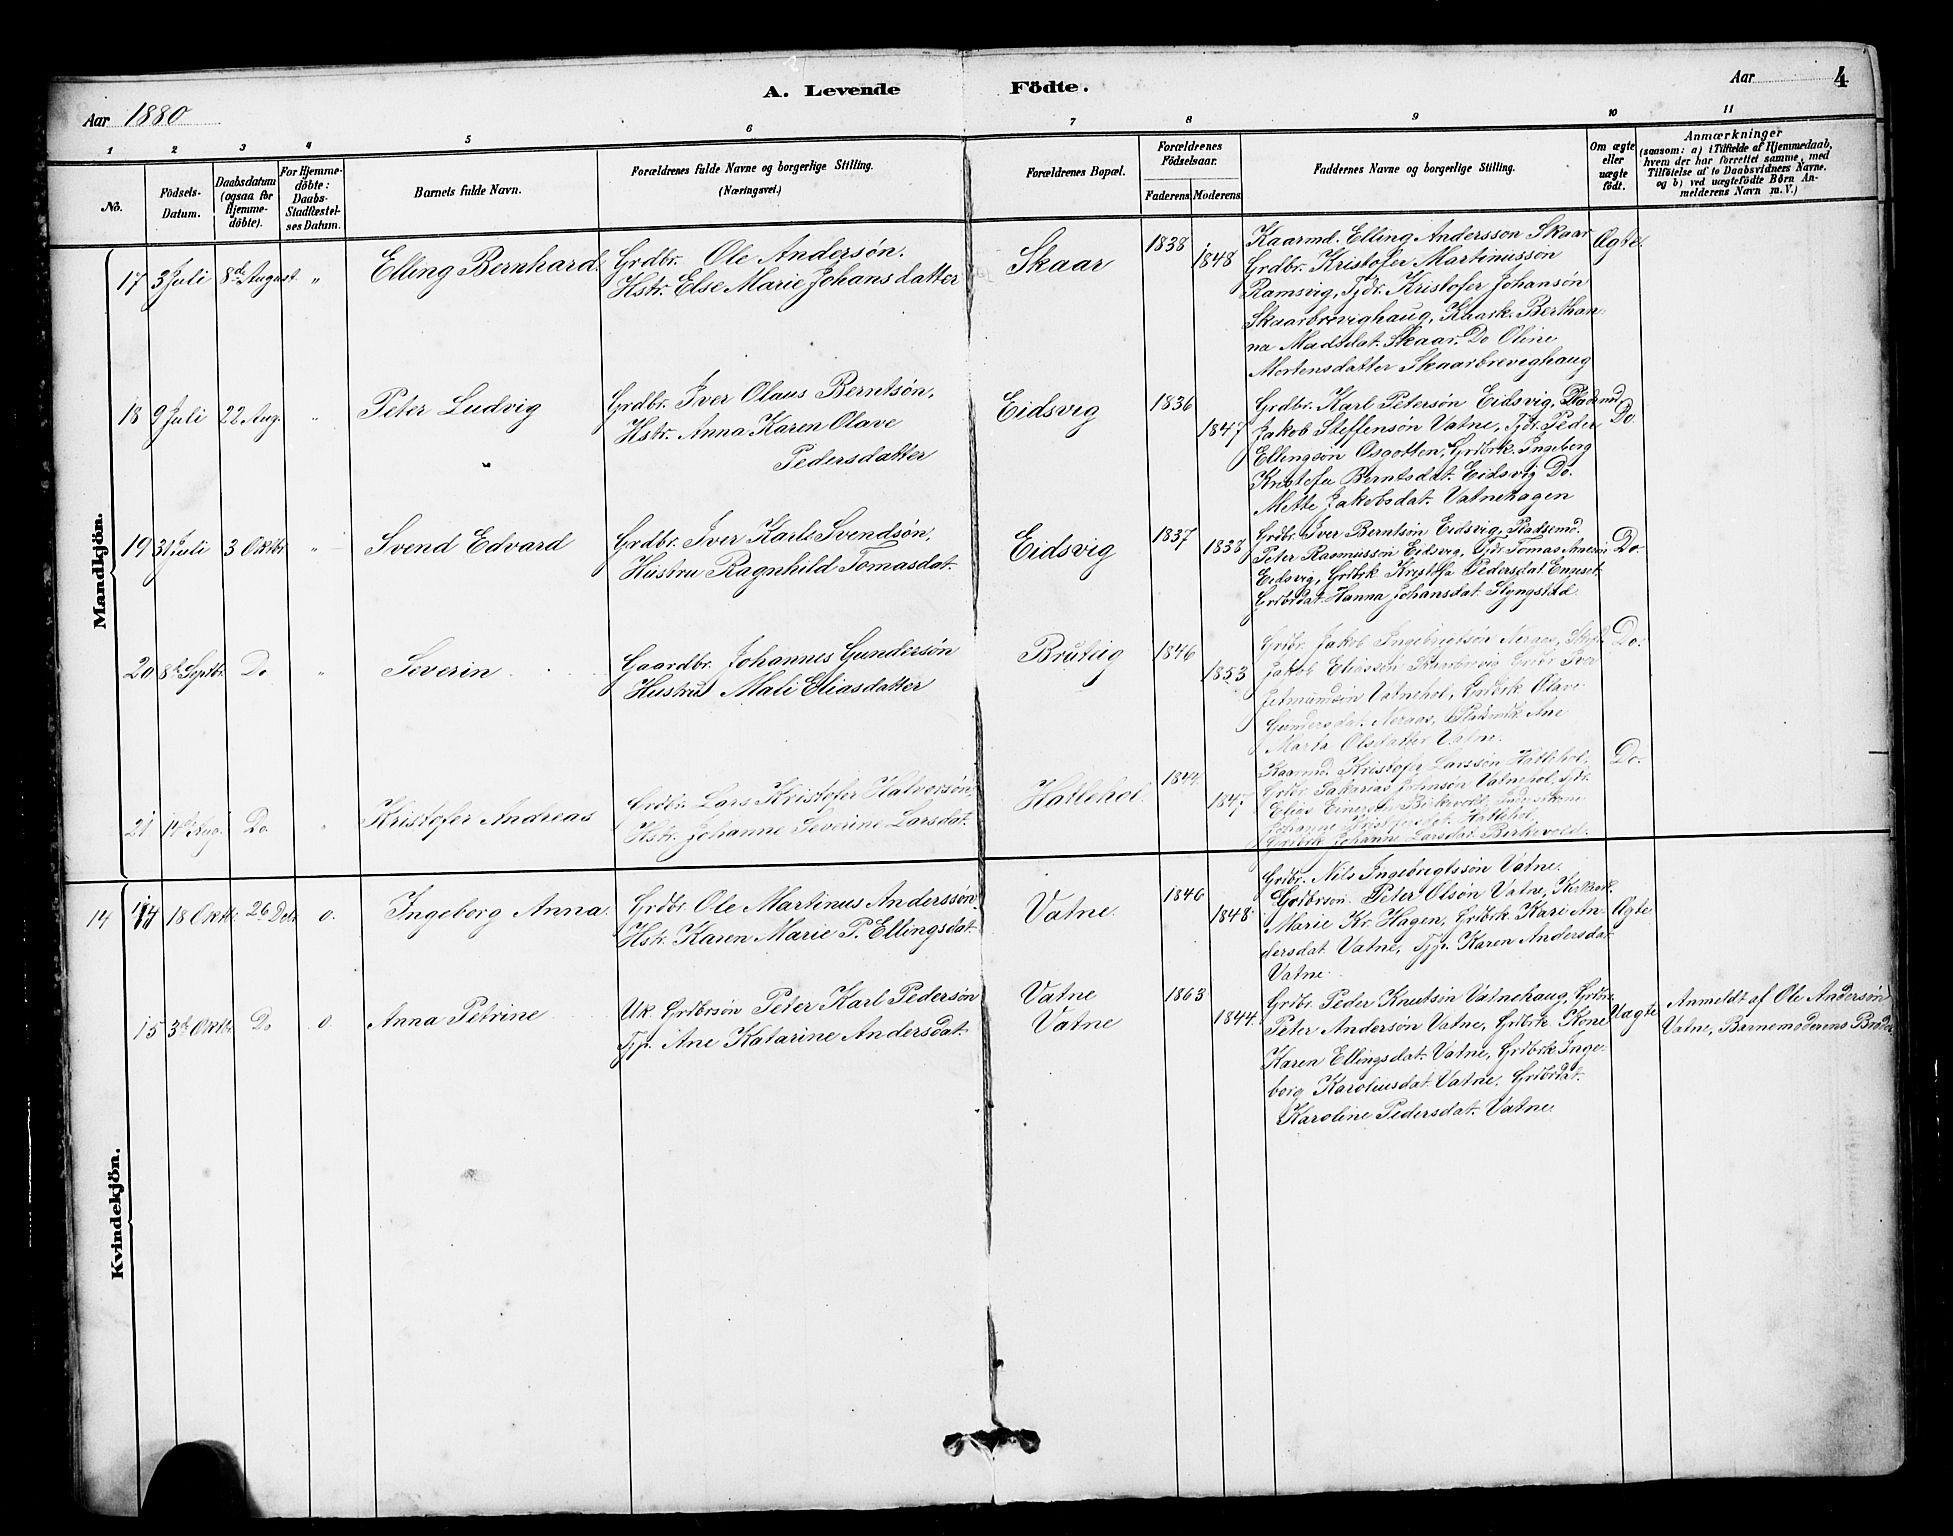 A. Levende Födte.
Aar 1880
Aar 4
1 2 3 4 5 6 7 8 9 10 11
No.
Födsels-Datum.
Daabsdatum (ogsaa for Hjemme-döbte).
For Hjemme-döbte: Daabs-Stadfæstel-ses Datum.
Barnets fulde Navn.
Forældrenes fulde Navne og borgerlige Stilling. (Næringsvei.)
Forældrenes Bopæl.
Forældrenes Födselsaar.
Faderens. Moderens.
Faddernes Navne og borgerlige Stilling.
Om ægte eller uægte födt.
Anmærkninger (saasom: a) i Tilfælde af Hjemmedaab, hvem der har forrettet samme, med Tilföielse af to Daabsvidners Navne, og b) ved uægtefödte Börn An-melderens Navn m. V.)
Mandkjön.
17 3 Juli 8de August " Elling Bernhard.
Grdbr. Ole Andersøn.
Hstr. Else Marie Johansdatter
Skaar 1838 1848
Kaarmd. Elling Andersson Skaar
Grdbr. Kristofer Martinussøn
Ramsvig, Tjdr. Kristofer Johansøn
Skaarbrevighaug, Kaark. Berthan-
na Madsdat. Skaar. Do Oline
Mortensdatter Skaarbrevighaug
Ægte.
18 9 Juli 22 Aug. " Peter Ludvig
Grdbr. Iver Olaus Berntsøn,
Hstr. Anna Karen Olave
Pedersdatter
Eidsvig 1836 1847
Grdbr. Karl Petersøn Eidsvig,
Jakob Steffensøn Vatne, Tjdr. Peder
Ellingsøn Osgotten, Grdbrk. Ingeberg
Berntsdat. Eidsvig Do.
Mette Jakobsdat. Vatnehagen
Do.
19 31 Juli 3 Oktbr " Svend Edvard
Grdbr. Iver Karl Svendsøn,
Hustru Ragnhild Tomasdat.
Eidsvig 1837 1838
Grdbr. Iver Berntsøn Eidsvig, Pladsemd.
Peter Rasmussøn Eidsvig, Tjdr. Tomas
Eidsvig, Grdbrk. Pedersdat.
Grdbrdat. Hanna Johansdat.
Do.
20 8de Septbr. Do " Severin
Gaardbr. Johannes Gundersøn
Hustru Mali Eliasdatter
1846 1853
Grdbr. Jakob Ingebrigtsøn Neraas,
Jakob Eliassøn Skaarbrevig Grdbr. Iver
Vatnehol, Grdbrk. Olave
Gundersdat. Neraas, Ane
Marta Olsdatter Vatne.
Do.
21 14de Aug. Do. " Kristofer Andreas
Grdbr. Lars Kristofer Halversøn,
Hstr. Johanne Severine Larsdat.
Hatlehol. 1844 1847
Kaarmd. Kristofer Larssøn Hatlehol,
Grdbr. Sakarias Johnsøn Vatnehol,
Elias
Hatlehol,
Grdbrk. Johanne Larsdat. Birkevold.
Do.
Kvindekjön.
14 14 18 Oktbr. 26 Dcbr o. Ingeborg Anna.
Grdbr. Ole Martinus Anderssøn
Hstr. Karen Marie P. Ellingsdat.
Vatne. 1846 1848
Grdbr. Nils Ingebrigtssøn Vatne.
Grdbrsøn. Peter Olsøn Vatne,
Marie Kr. Hagen, Grdbrk. Kari An-
dersdat. Vatne, Tjp. Karen Andersdat.
Vatne.
Ægte
15 3de Oktbr. Do o Anna Petrine
Uk. Grdbrsøn Peter Karl Pedersøn
Tjp. Ane Katarine Andersdat.
Vatne
Vatne
1863 1844.
Grdbr. Peder Knutsøn Vatnehaug, Grdbr.
Peter Andersøn Vatne, Grdbrk. Kone
Karen Ellingsdat. Vatne, Grdbrk. Inge-
borg Karolusdat. Vatne. Grdbrdat.
Karoline Pedersdat. Vatne
Uægte
Anmeldt af Ole Andersøn
Vatne, Barnemoderens Broder